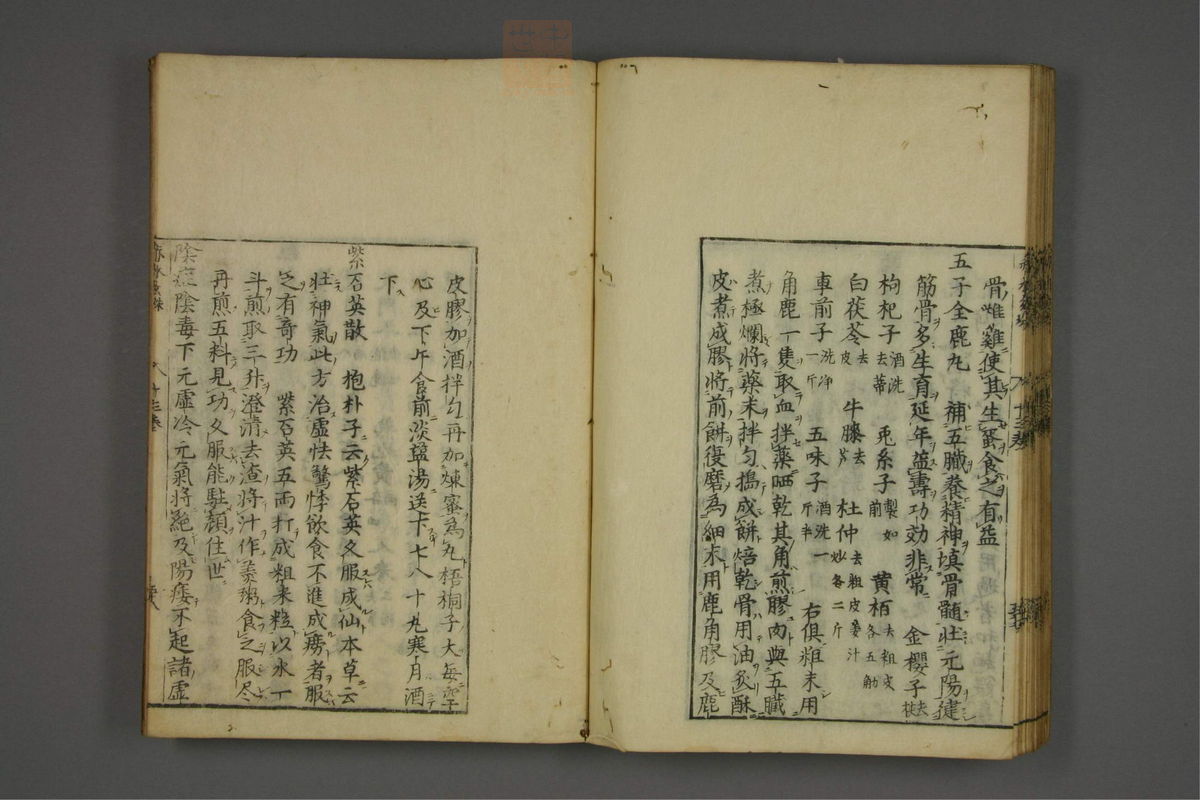 骨唯雞使其生蛋食之有益
五子全鹿丸　補五臟養精神填骨髓壯元陽健
筋骨多生育延年益壽功効非常　金櫻子去核
枸杞子酒洗去蒂　兎糸子製如前　黄栢去粗皮各五觔
白茯苓去皮　牛膝去芦　杜仲去粗皮姜汁炒各二斤
車前子洗净一斤　五味子酒洗一斤半　右俱粗末用
角鹿一隻取血拌薬晒乾其角煎膠肉與五臟
煮極爛將藥末拌匀搗成餅焙乾骨用油炙酥
皮煮成膠將前餅復磨為細末用鹿角膠及鹿
皮膠加酒拌匀再加煉蜜為丸梧桐子大每空
心及下午食前淡盬湯送下七八十丸寒月酒
下
紫石英散　抱朴子云紫石英久服成仙本草云
壯神氣此方治虚怯驚悸飲食不進成癆者服
之有奇功　紫石英五両打成粗米粒以水一
斗煎取三升澄清去渣將汁作羙粥食之服尽
再煎五料見功久服能駐顔住世
陰症陰毒下元虚冷元氣將絕及陽痿不起諸虚